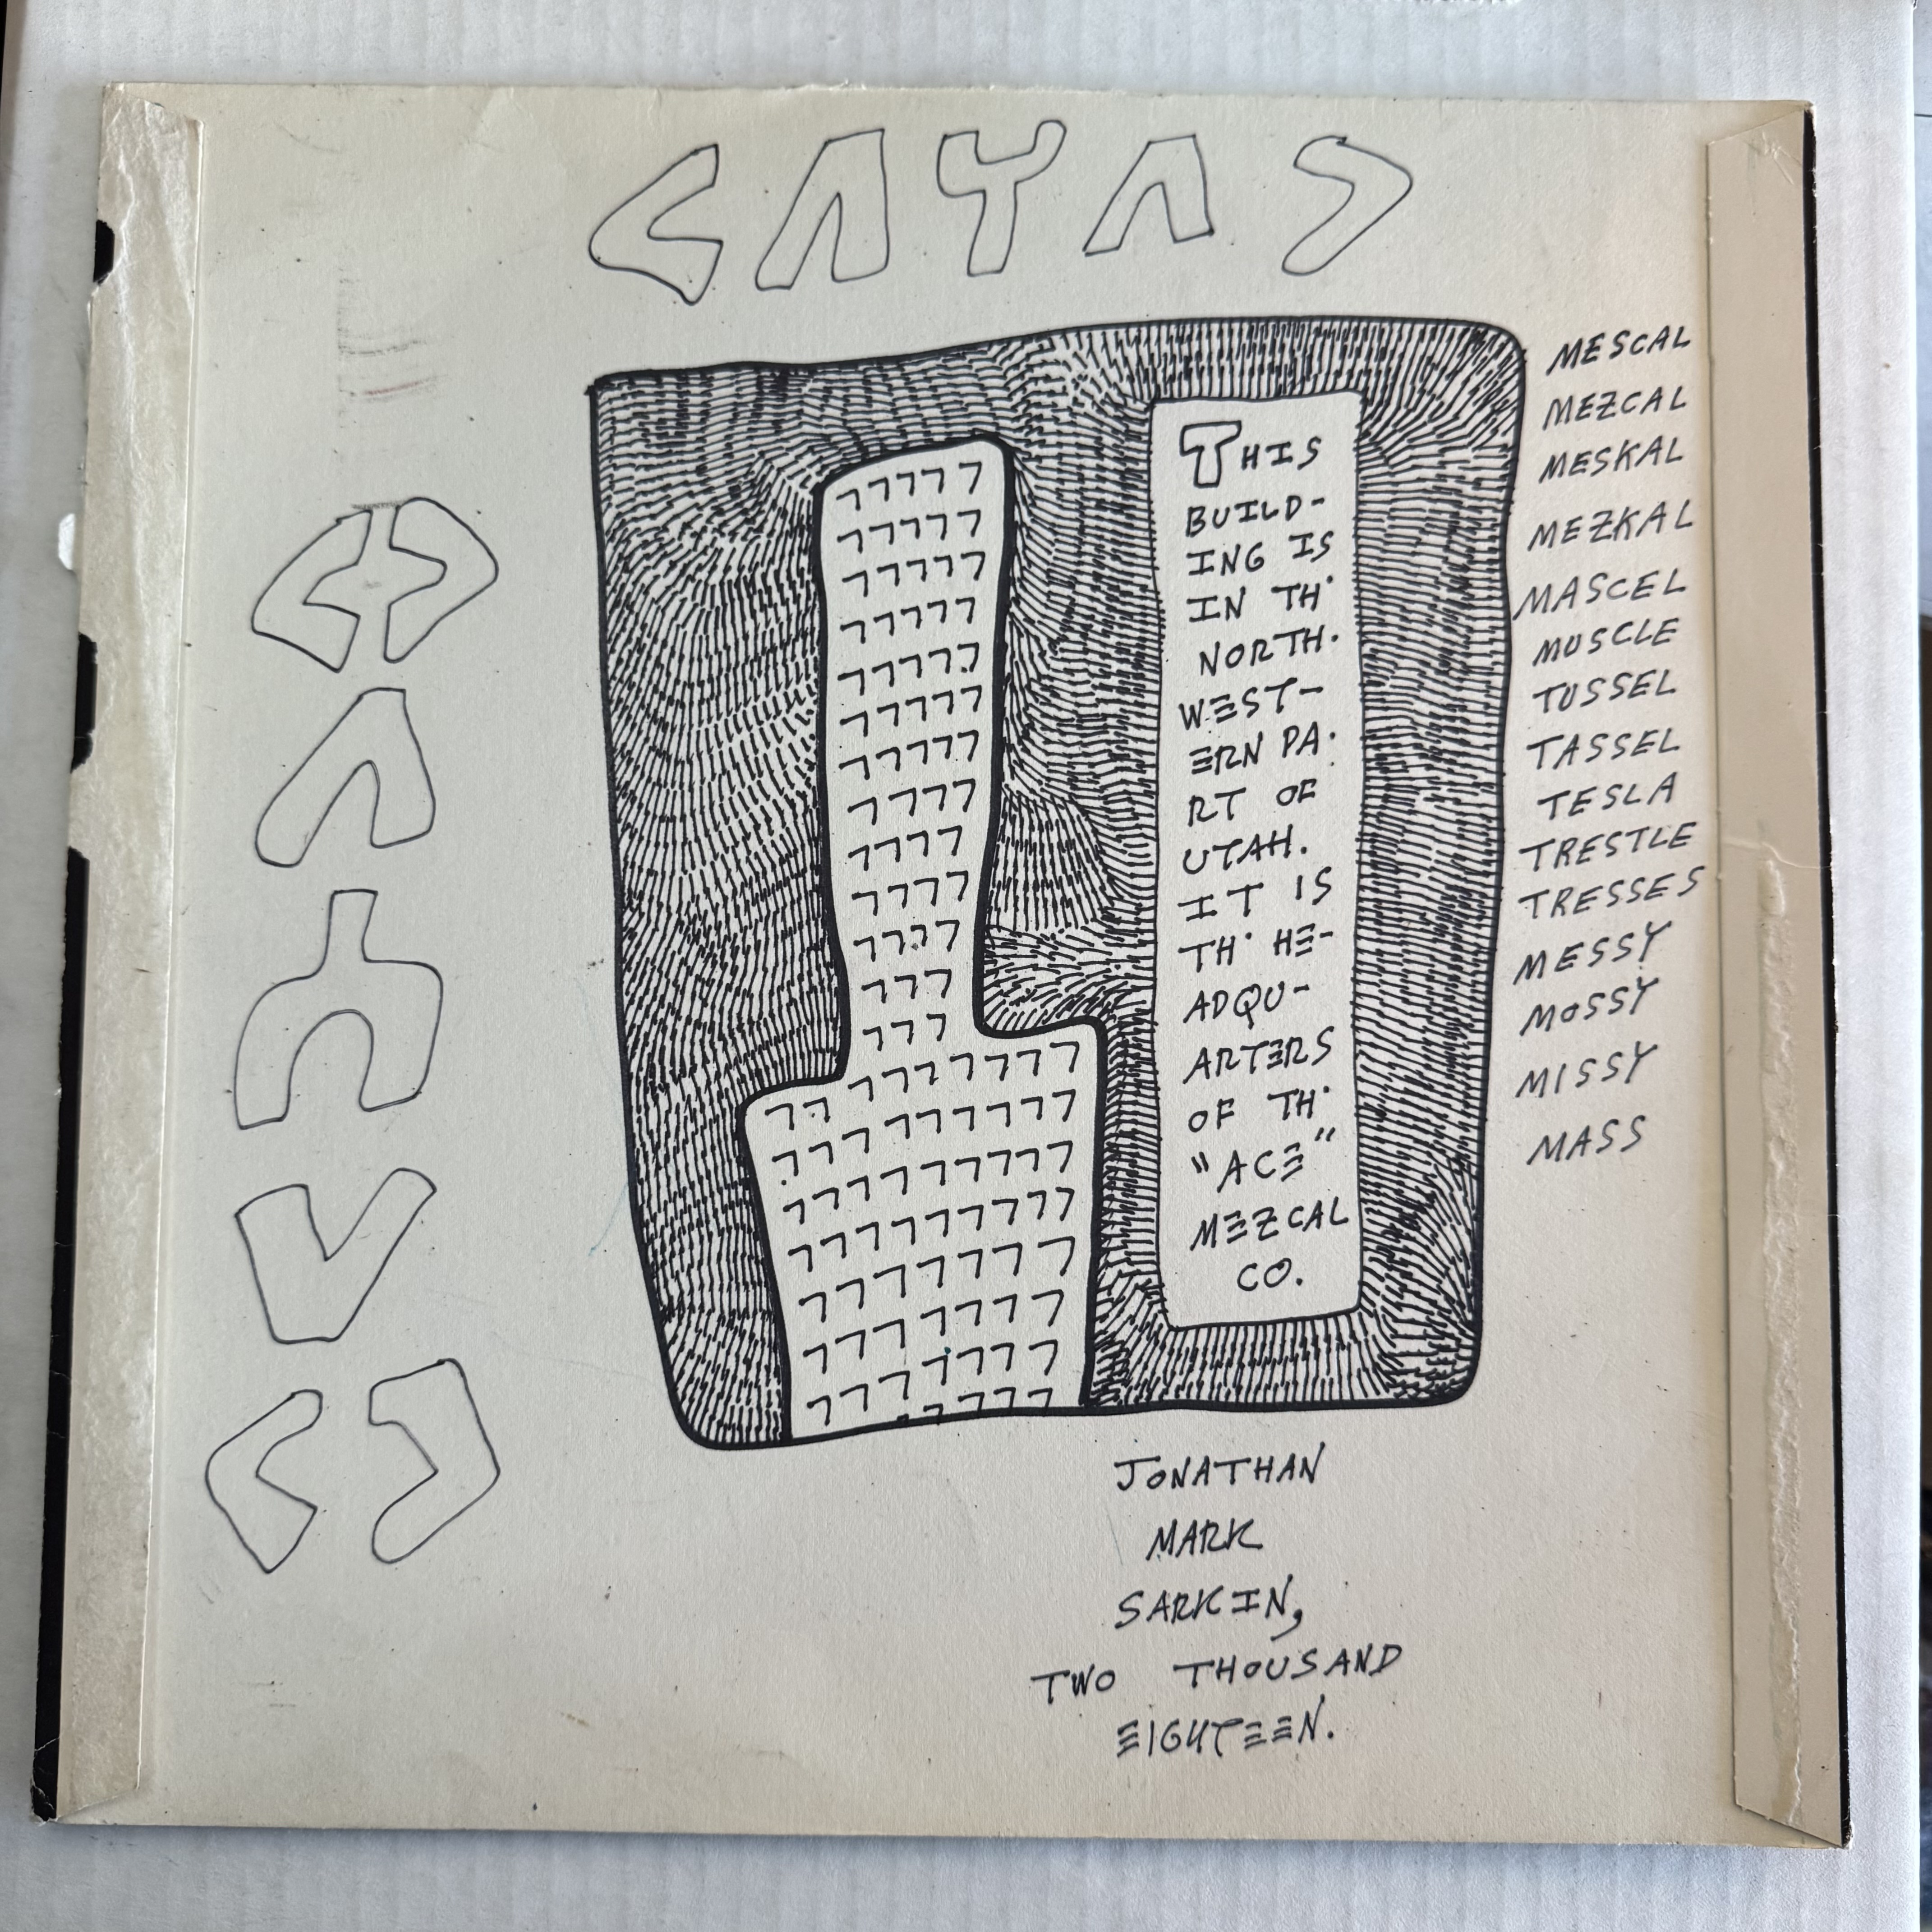 THIS
BUILD-
ING IS
IN TH·
NORTH·
WEST-
ERN PA·
RT OF
UTAH.
IT IS
TH· HE-
ADQU-
ARTERS
OF TH·
"ACE"
MEZCAL
CO.
MESCAL
MEZCAL
MESKAL
MEZKAL
MASCEL
MUSCLE
TUSSEL
TASSEL
TESLA
TRESTLE
TRESSES
MESSY
MOSSY
MISSY
MASS
JONATHAN
MARK
SARKIN,
TWO THOUSAND
EIGHTEEN.